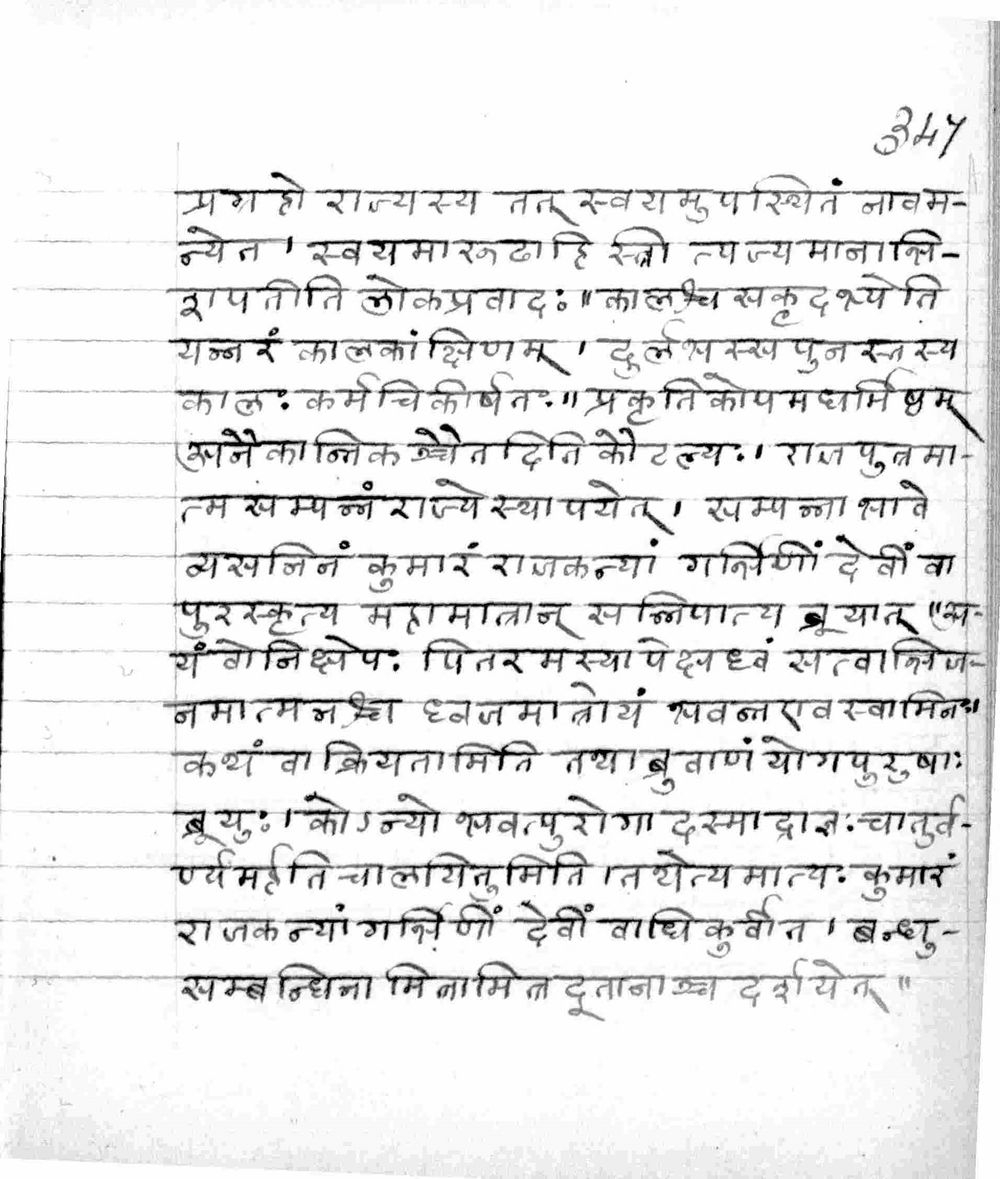 347
प्रग्रहो राज्यस्य तत् स्वयमुपस्थितं नावम-
न्येत । स्वयमारूढा हि स्त्री त्यज्यमानाभि-
शपतीति लोकप्रवादः ॥ कालश्च सकृदभ्येति
यन्नरं कालकांक्षिणम् । दुर्लभस्स पुनस्तस्य
कालः कर्म चिकीर्षतः ॥ प्रकृतिकोपमधर्मिष्ठम्
अनैकान्तिकञ्चैतदिति कौटल्यः । राजपुत्रमा-
त्मसम्पन्नं राज्ये स्थापयेत् । सम्पन्नाभावे
व्यसनिनं कुमारं राजकन्यां गर्भिणीं देवीं वा
पुरस्कृत्य महामात्रान् सन्निपात्य ब्रूयात् "अ-
यं वो निक्षेपः पितरमस्यापेक्षध्वं सत्वाभिज-
नमात्मनश्च ध्वजमात्रोयं भवन्त एव स्वामिनः।
कथं वा क्रियतामिति तथा ब्रुवाणं योगपुरुषाः
ब्रूयुः । कोऽन्यो भवत्पुरोगादस्माद्राज्ञः चातुर्व-
र्ण्यमर्हति चालयितुमिति । तथेत्यमात्यः कुमारं
राजकन्यां गर्भिणीं देवीं वाधिकुर्वीत । बन्धु-
सम्बन्धिनामित्रामित्रदूतानाञ्च दर्शयेत् "